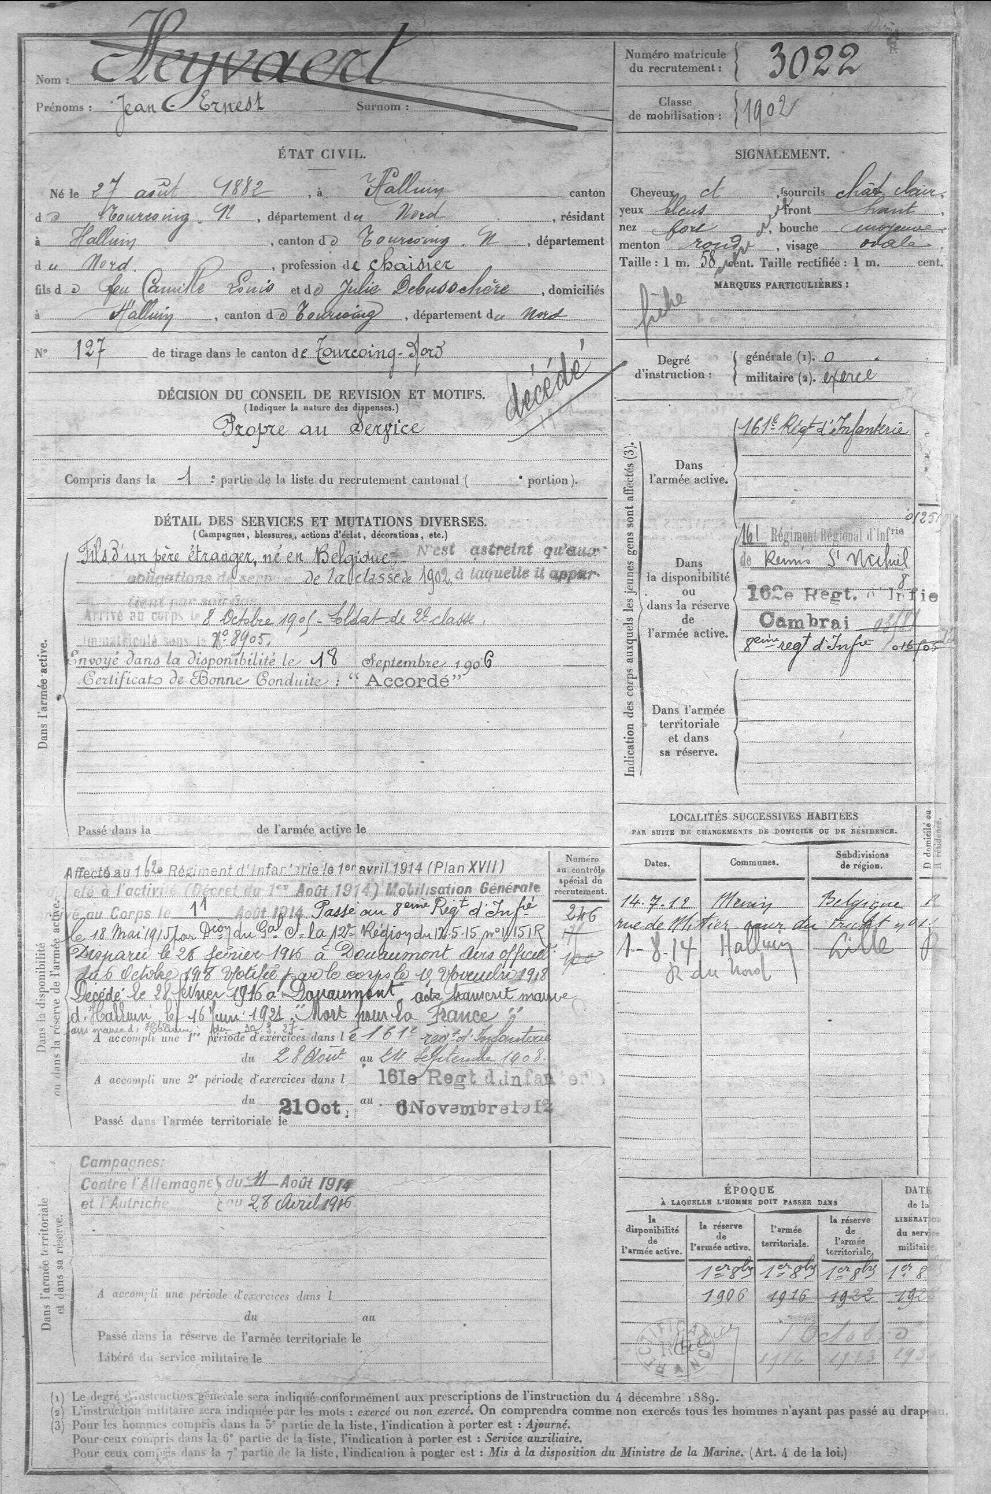 Nom : Heyvaert
Prénoms : Jean Ernest Surnom :
Numéro matricule du recrutement : 3022
Classe de mobilisation : 1902
ÉTAT CIVIL.
Né le 27 août 1882, à Halluin canton
d e Tourcoing. N, département du Nord, résidant
à Halluin, canton d e Tourcoing. N, département
d u Nord, profession de chaisier
fils d e feu Camille Louis et d e Julie Debusschère, domiciliés
à Halluin, canton d e Tourcoing, département du Nord
N° 127 de tirage dans le canton de Tourcoing-Nord
SIGNALEMENT.
Cheveux ct, sourcils chât clair,
yeux bleus front haut,
nez fort, bouche moyenne,
menton rond, visage ovale
Taille : 1 m. 58 cent. Taille rectifiée : 1 m. cent.
MARQUES PARTICULIÈRES :
Degré d'instruction : générale (1). 0
militaire (2). exercé
DÉCISION DU CONSEIL DE REVISION ET MOTIFS.
(Indiquer la nature des dispenses.)
Propre au Service
décédé
Compris dans la 1e partie de la liste du recrutement cantonal ( portion).
DÉTAIL DES SERVICES ET MUTATIONS DIVERSES.
(Campagnes, blessures, actions d'éclat, décorations, etc.)
Dans l'armée active.
Fils d'un père étranger, né en Belgique, N'est astreint qu'aux
obligations de la classe de 1902 à laquelle il appar-
tient par son âge
Arrivé au corps le 8 Octobre 1905 Soldat de 2e classe.
Immatriculé sous le N° 8905.
Envoyé dans la disponibilité le 18 Septembre 1906
Certificat de Bonne Conduite : "Accordé"
Passé dans la de l'armée active le
Indication des corps auxquels les jeunes gens sont affectés (3).
Dans l'armée active.
161e Régt d'Infanterie
Dans la disponibilité ou dans la réserve de l'armée active.
161 Régiment Régional d'Infrie
de Reims St Mihiel
162e Regt. d'Infie
Cambrai
8eme regt d'Infie
Dans l'armée territoriale et dans sa réserve.
LOCALITÉS SUCCESSIVES HABITÉES
PAR SUITE DE CHANGEMENTS DE DOMICILE OU DE RÉSIDENCE.
Dates. Communes. Subdivisions de région. D domicile ou R résidence.
14-7-12 Menin Belgique R
1-8-14 Halluin Lille
R du Nord
Dans la disponibilité ou dans la réserve de l'armée active.
Numéro au contrôle spécial du recrutement.
246
Affecté au 162e Régiment d'Infanterie le 1er avril 1914 (Plan XVII)
elé à l'activité (Décret du 1er Août 1914) Mobilisation Générale
vé au Corps le 11 Août 1914 Passé au 8eme Regt d'Infie
le 18 Mai 1915 par
Disparu le 28 février 1916 à Douaumont Avis officiel
du 6 Octobre 1918 notifié par le corps le 19 Novembre 1918
Décédé le 28 février 1916 à Douaumont acte transcrit
d'Halluin le 16 Juin 1921 "Mort pour la France"
A accompli une 1re période d'exercices dans le 161e regt d'Infanterie
du 28 Août au 24 Septembre 1908.
A accompli une 2e période d'exercices dans l 161e Regt d'Infanterie
du 21 Oct. au 6 Novembre 1912
Passé dans l'armée territoriale le
Dans l'armée territoriale et dans sa réserve.
Campagnes:
Contre l'Allemagne du 11 Août 1914
et l'Autriche au 28 Avril 1916
A accompli une période d'exercices dans l
du au
Passé dans la réserve de l'armée territoriale le
Libéré du service militaire le
ÉPOQUE
À LAQUELLE L'HOMME DOIT PASSER DANS
la disponibilité de l'armée active. la réserve de l'armée active. l'armée territoriale. la réserve de l'armée territoriale. DATE de la LIBÉRATION du service militaire
1er 8bre 1er 8bre 1er 8bre 1er 8
1906 1916 1922
(1) Le degré d'instruction générale sera indiqué conformément aux prescriptions de l'instruction du 4 décembre 1889.
(2) L'instruction militaire sera indiquée par les mots : exercé ou non exercé. On comprendra comme non exercés tous les hommes n'ayant pas passé au drapeau.
(3) Pour les hommes compris dans la 5e partie de la liste, l'indication à porter est : Ajourné.
Pour ceux compris dans la 6e partie de la liste, l'indication à porter est : Service auxiliaire.
Pour ceux compris dans la 7e partie de la liste, l'indication à porter est : Mis à la disposition du Ministre de la Marine. (Art. 4 de la loi.)